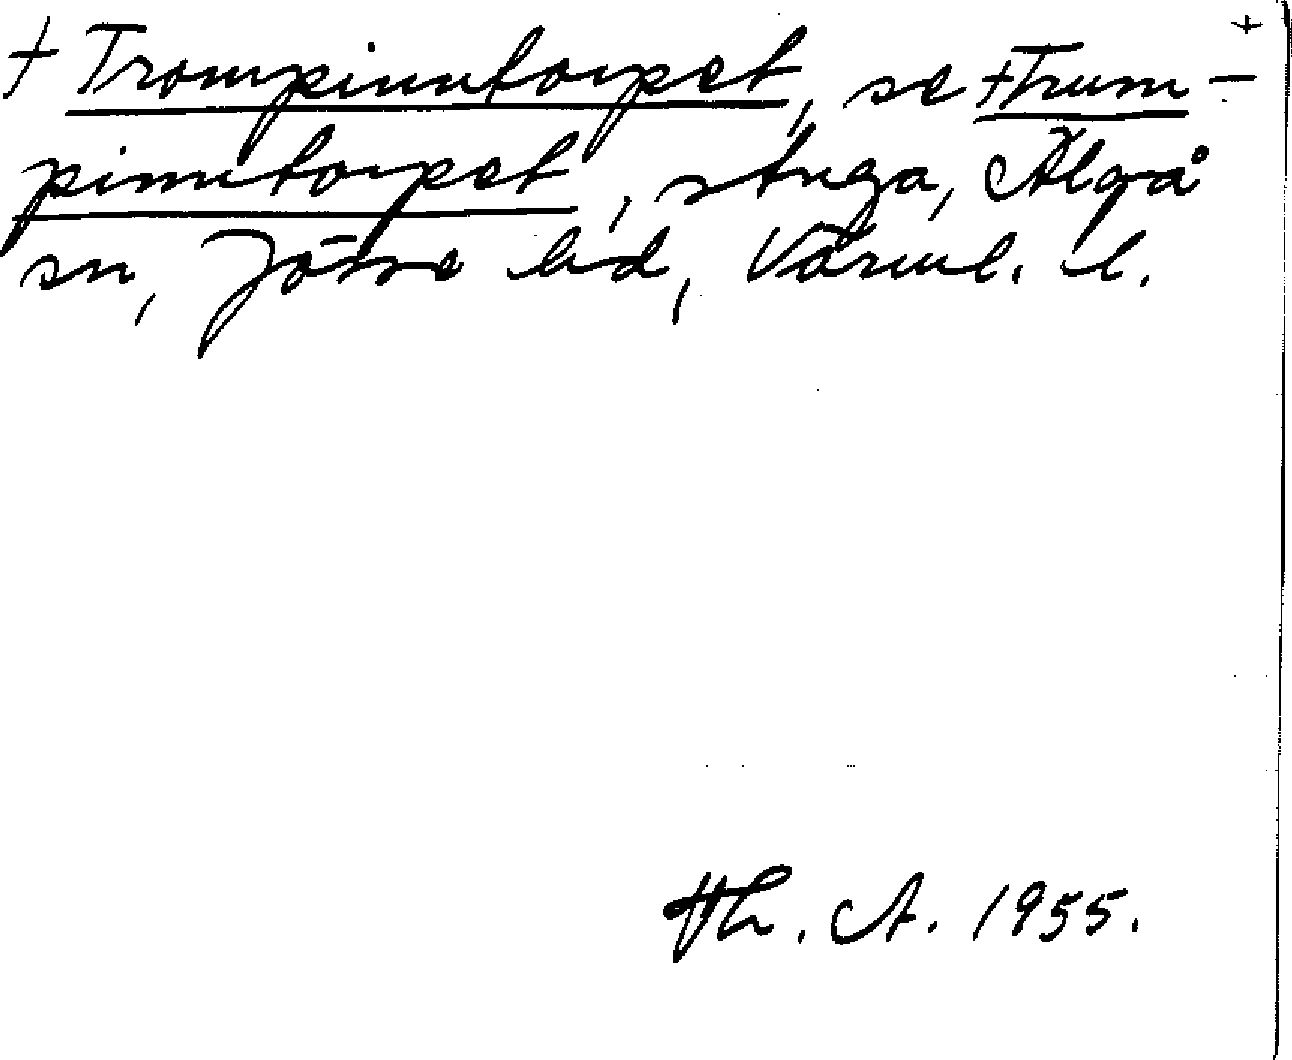 † Trompinntorpet, se †Trum-
pinntorpet, stuga, Älgå
sn, Jösse hd, Värml. l.
Th. A. 1955.